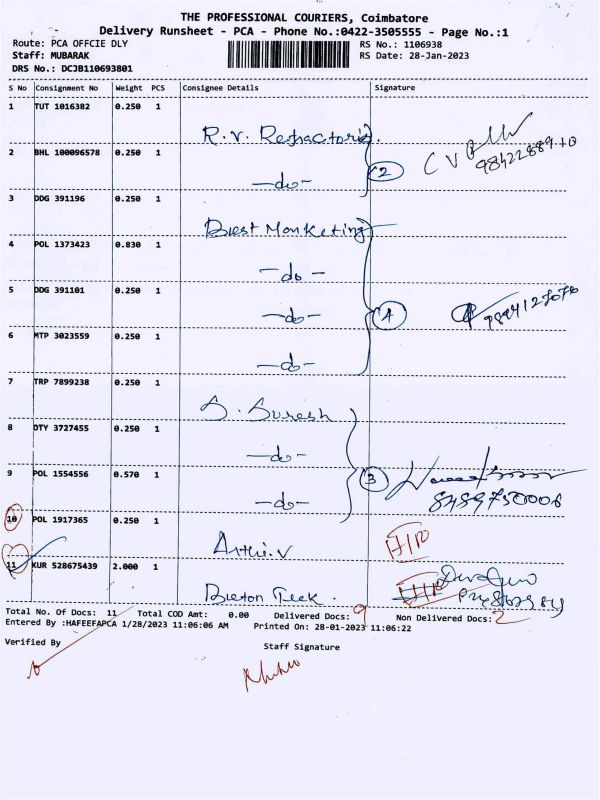 THE PROFESSIONAL COURIERS, Coimbatore
Delivery Runsheet - PCA - Phone No.:0422-3505555 - Page No.:1
Route: PCA OFFCIE DLY
RS No.: 1106938
Staff: MUBARAK
RS Date: 28-Jan-2023
DRS No.: DCJB110693801
S No Consignment No Weight PCS Consignee Details Signature
1 TUT 1016382 0.250 1
R.V. Refractories.
2 BHL 100096578 0.250 1
-do- 2
3 DDG 391196 0.250 1
Best Marketing
4 POL 1373423 0.830 1
-do-
5 DDG 391101 0.250 1
-do- 4
6 MTP 3023559 0.250 1
-do-
7 TRP 7899238 0.250 1
S. Suresh
8 OTY 3727455 0.250 1
-do-
9 POL 1554556 0.570 1
-do- 3 8489750006
10 POL 1917365 0.250 1
Arthi.V
11 KUR 528675439 2.000 1
Total No. Of Docs: 11 Total COD Amt: 0.00 Delivered Docs: 9 Non Delivered Docs: 2
Entered By :HAFEEFAPCA 1/28/2023 11:06:06 AM Printed On: 28-01-2023 11:06:22
Verified By
Staff Signature